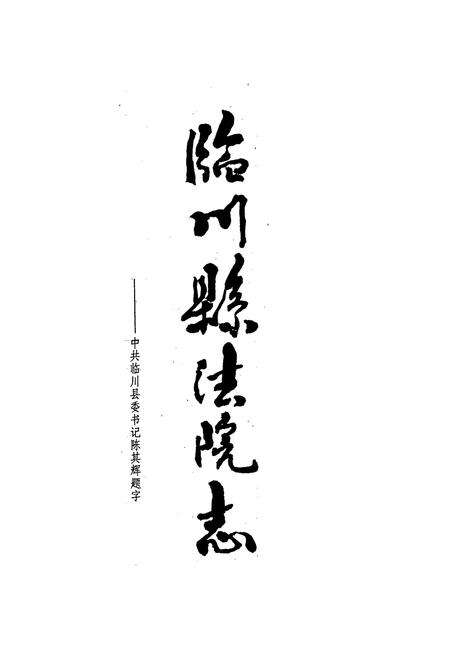 臨川縣法院志
——中共临川县委书记陈其辉题字